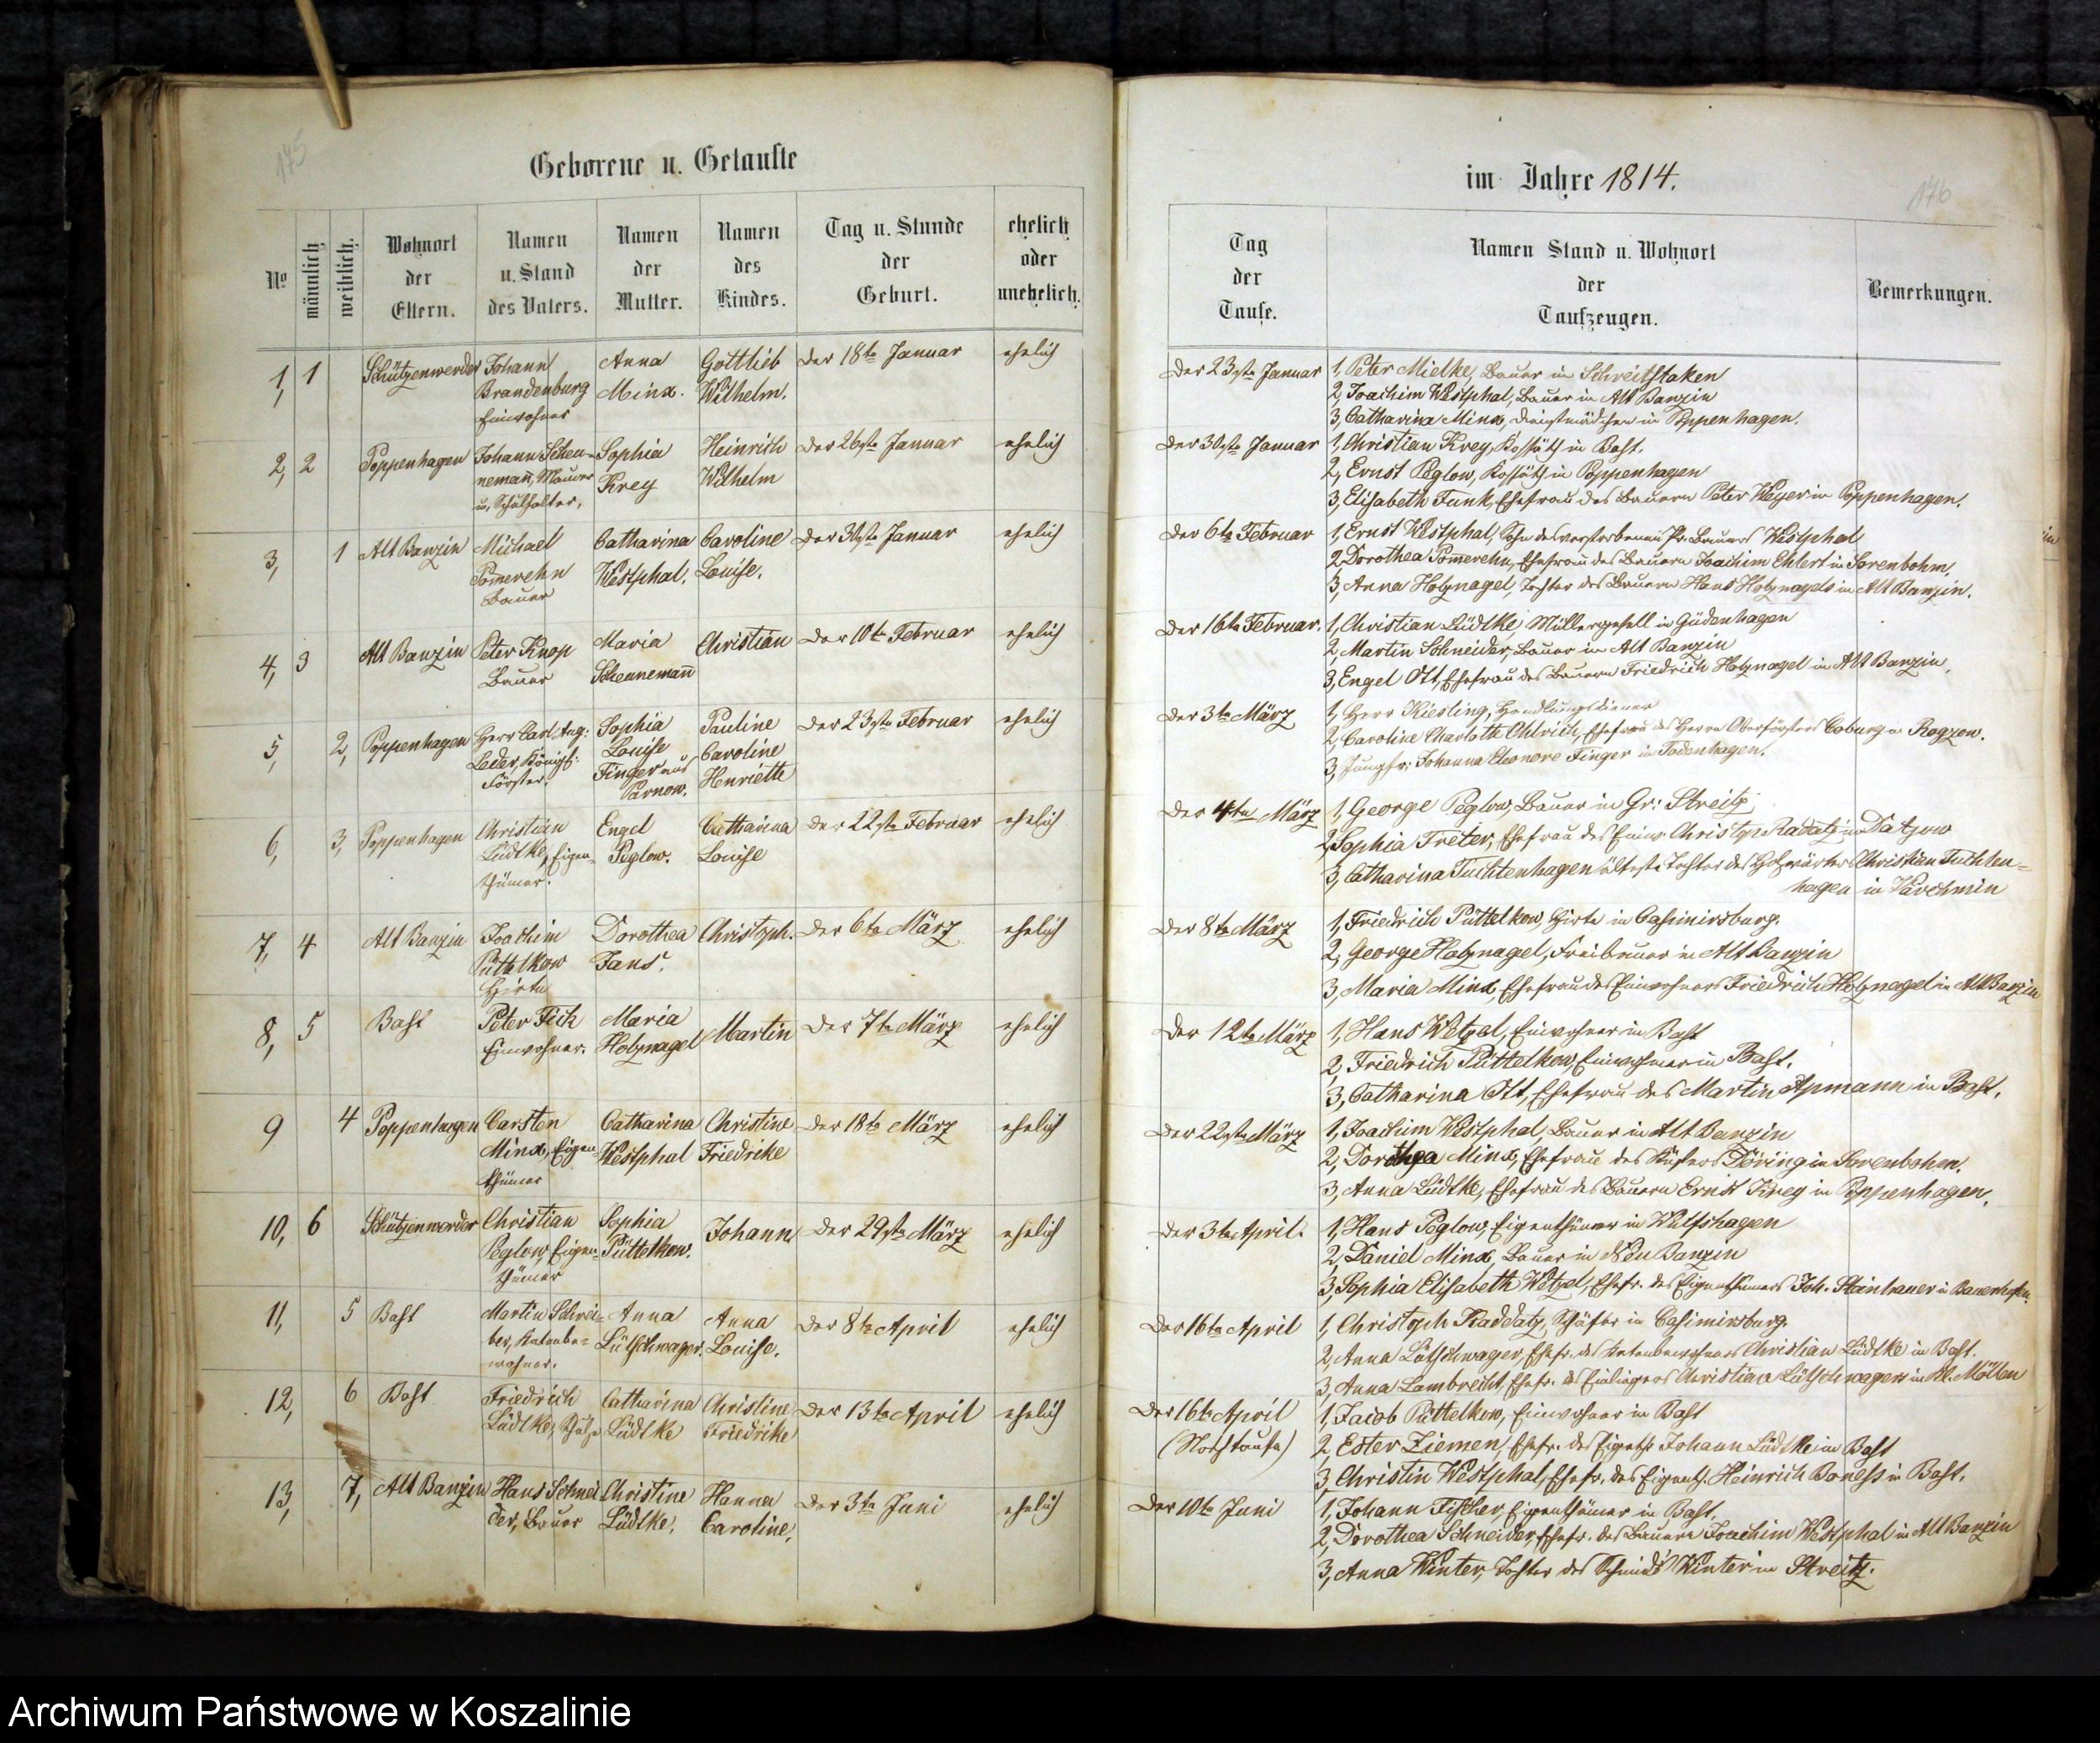 175
Geborene u. Getaufte
No
männlich
weiblich.
Wohnort
der
Eltern.
Namen
u. Stand
des Vaters.
Namen
der
Mutter.
Namen
des
Kindes.
Tag u. Stunde
der
Geburt.
ehelich
oder
unehelich.
1, 1 Schützenwerder Johann Anna Gottlieb der 18te Januar ehelich
Brandenburg Minx. Wilhelm.
Einwohner
2, 2 Poppenhagen Johann Schen- Sophia Heinrich der 26ste Januar ehelich
nemañ, Maurer Krey Wilhelm
u. Schulhalter,
3, 1 Alt Banzin Michael Catharina Caroline der 31ste Januar ehelich
Pomerehn Westphal. Louise.
Bauer
4, 3 Alt Banzin Peter Knop Maria Christian der 10te Februar ehelich
Bauer Schennemañ
5, 2, Poppenhagen Herr Carl Aug: Sophia Pauline der 23ste Februar ehelich
Leder, Königl: Louise Caroline
Förster. Finger aus Henriette
Parnow.
6, 3, Poppenhagen Christian Engel Catharina der 22ste Februar ehelich
Lüdtke, Eigen- Peglow. Louise
thümer.
7, 4 Alt Banzin Joachim Dorothea Christoph. der 6te März ehelich
Püttelkow Jans.
Hirte
8, 5 Bast Peter Fick Maria Martin der 7te März ehelich
Einwohner. Holznagel
9 4 Poppenhagen Carsten Catharina Christine der 18te März ehelich
Minx, Eigen- Westphal Friedrike
thümer
10, 6 Schützenwerder Christian Sophia Johann der 29ste März ehelich
Peglow, Eigen- Püttelkow.
thümer
11, 5 Bast Martin Schrei- Anna Anna der 8te April ehelich
ber, Katenbe- Lütschwager. Louise.
wohner.
12, 6 Bast Friedrich Catharina Christine der 13te April ehelich
Lüdtke, Lüdtke Friedrike
13, 7, Alt Banzin Hans Schnei Christine Hanna der 3te Juni ehelich
der, Bauer Lüdtke, Caroline,
im Jahre 1814.
176
Tag
der
Taufe.
Namen Stand u. Wohnort
der
Taufzeugen.
Bemerkungen.
der 23ste Januar 1, Peter Mielke, Bauer in Schreitstaken
2, Joachim Westphal, Bauer in Alt Banzin
3, Catharina Minx, Dienstmädchen in Poppenhagen.
der 30ste Januar 1, Christian Krey, Kossäth in Bast.
2, Ernst Peglow, Kossäth in Poppenhagen
3, Elisabeth Funk, Ehefrau des Bauern Peter Weyer in Poppenhagen.
der 6te Februar 1, Ernst Westphal, Sohn des verstorbenen Bauers Westphal
2, Dorothea Pomerehn, Ehefrau des Bauern Joachim Ehlert in Sorenbohm
3, Anna Holznagel, Tochter des Bauern Hans Holznagels in Alt Banzin.
der 16te Februar. 1, Christian Lüdtke, Müllergesell in Güdenhagen
2, Martin Schneider, Bauer in Alt Banzin
3, Engel Ott, Ehefrau des Bauern Friedrich Holznagel in Alt Banzin.
der 3te März 1, Herr Kiesling, Handlungsdiener
2, Caroline Charlotte Ehefrau des Herrn Oberförsters Coburg in Rogzow.
3, Jungfr: Johanna Eleonore Finger in Todenhagen.
der 4te März 1, George Peglow, Bauer in Gr: Streitz
2, Sophia Freter, Ehefrau des Einw. Christoph Radatz in Datjow
3, Catharina Tuchtenhagen älteste Tochter des Holzwärters Christian Tuchten-
hagen in Varchmin
der 8te März 1, Friedrich Püttelkow, Hirte in Casimirsburg.
2, George Holznagel, Freibauer in Alt Banzin
3, Maria Minx, Ehefrau des Einwohners Friedrich Holznagel in Alt Banzin
der 12te März 1, Hans Wetzel, Einwohner in Bast
2, Friedrich Püttelkow, Einwohner in Bast.
3, Catharina Ott, Ehefrau des Martin Apmann in Bast.
der 22ste März 1, Joachim Westphal, Bauer in Alt Banzin
2, Dorothea Minx, Ehefrau des Küsters Döring in Sorenbohm.
3, Anna Lüdtke, Ehefrau des Bauern Ernst Krey in Poppenhagen.
der 3te April. 1, Hans Peglow, Eigenthümer in Wulfshagen
2, Daniel Minx, Bauer in Neu Banzin
3, Sophia Elisabeth Wetzel, Ehefr. des Eigenthümers Joh. Steinhauer in Bauerhufen.
der 16te April 1, Christoph Raddatz, Schäfer in Casimirsburg.
2, Anna Lütschwager, Ehefr. des Katenbewohners Christian Lüdtke in Bast.
3, Anna Lambrecht, Ehefr. des Einliegers Christian Lütschwager in Kl. Möllen
der 16te April 1, Jacob Püttelkow, Einwohner in Bast
(Nothtaufe) 2, Ester Ziemen, Ehefr. des Eigenth. Johann Lüdtke in Bast
3, Christin Westphal, Ehefr. des Eigenth. Heinrich Boness in Bast.
der 10te Juni 1, Johann Fischer, Eigenthümer in Bast.
2, Dorothea Schneider, Ehefr. des Bauern Joachim Westphal in Alt Banzin
3, Anna Winter, Tochter des Schmids Winter in Streitz.
Archiwum Państwowe w Koszalinie